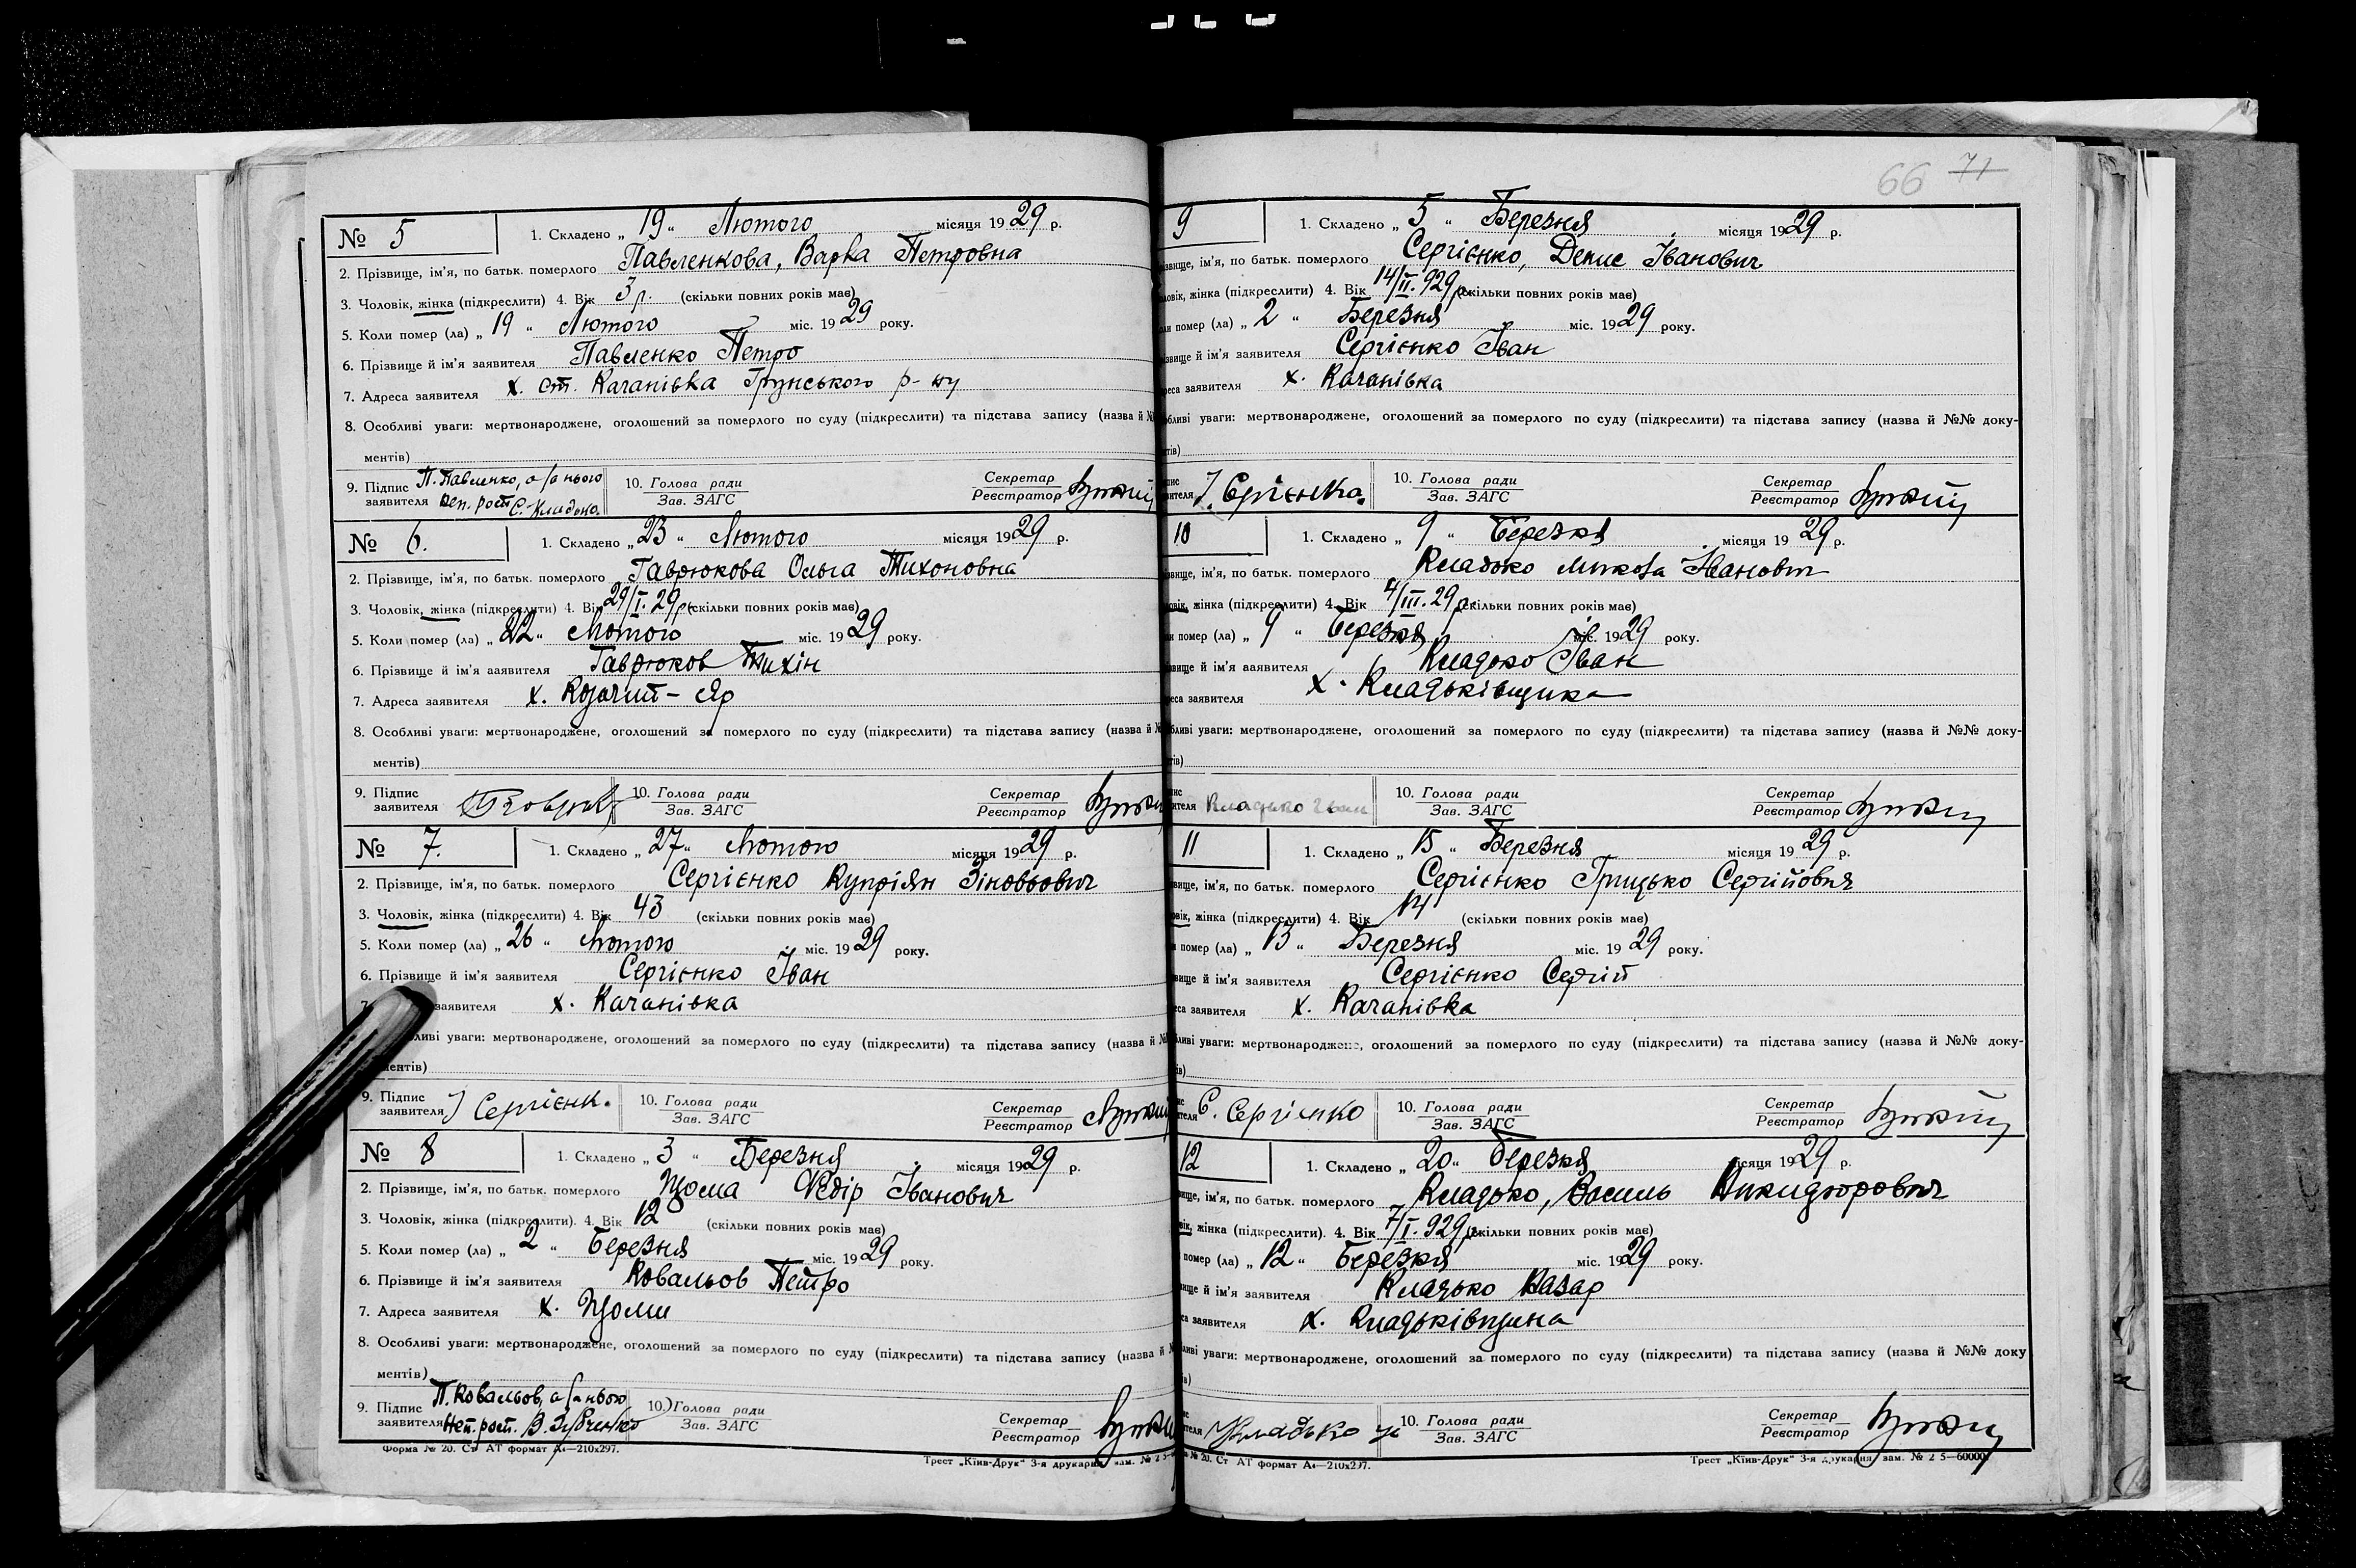 66 71
№ 5
1. Складено „ 19 “ Лютого місяця 1929 р.
2. Прізвище, ім'я, по батьк. померлого Павленкова, Варка Петровна
3. Чоловік, жінка (підкреслити) 4. Вік 3 р. (скільки повних років має)
5. Коли помер (ла) „ 19 “ Лютого міс. 1929 року.
6. Прізвище й ім'я заявителя Павленко Петро
7. Адреса заявителя х. ст. Качанівка Грунського р-ну
8. Особливі уваги: мертвонароджене, оголошений за померлого по суду (підкреслити) та підстава запису (назва й №
ментів)
9. Підпис заявителя П. Павленко, а за нього
неп. рост. С. Кладько
10. Голова ради
Зав. ЗАГС
Секретар
Реєстратор
№ 6.
1. Складено „ 23 “ Лютого місяця 1929 р.
2. Прізвище, ім'я, по батьк. померлого Гаврюкова Ольга Тихоновна
3. Чоловік, жінка (підкреслити) 4. Вік 29/I.29 р. (скільки повних років має)
5. Коли помер (ла) „ 22 “ Лютого міс. 1929 року.
6. Прізвище й ім'я заявителя Гаврюков Тихін
7. Адреса заявителя х. Козачий-Яр
8. Особливі уваги: мертвонароджене, оголошений за померлого по суду (підкреслити) та підстава запису (назва й №
ментів)
9. Підпис
заявителя
10. Голова ради
Зав. ЗАГС
Секретар
Реєстратор
№ 7.
1. Складено „ 27 “ Лютого місяця 1929 р.
2. Прізвище, ім'я, по батьк. померлого Сергієнко Купріян Зіновьович
3. Чоловік, жінка (підкреслити) 4. Вік 43 (скільки повних років має)
5. Коли помер (ла) „ 26 “ Лютого міс. 1929 року.
6. Прізвище й ім'я заявителя Сергієнко Іван
7. заявителя х. Качанівка
ливі уваги: мертвонароджене, оголошений за померлого по суду (підкреслити) та підстава запису (назва й №
ментів)
9. Підпис
заявителя І Сергієнк.
10. Голова ради
Зав. ЗАГС
Секретар
Реєстратор
№ 8
1. Складено „ 3 “ Березня місяця 1929 р.
2. Прізвище, ім'я, по батьк. померлого Цьома Федір Іванович
3. Чоловік, жінка (підкреслити). 4. Вік 12 (скільки повних років має)
5. Коли помер (ла) „ 2 “ Березня міс. 1929 року.
6. Прізвище й ім'я заявителя Ковальов Петро
7. Адреса заявителя х. Цьоми
8. Особливі уваги: мертвонароджене, оголошений за померлого по суду (підкреслити) та підстава запису (назва й №
ментів)
9. Підпис П. Ковальов, а за нього
заявителя неп. рост.
10. Голова ради
Зав. ЗАГС
Секретар
Реєстратор
Форма № 20. Ст АТ формат А4—210x297.
Трест „Київ-Друк“ 3-я друкарня зам. № 2 5
9
1. Складено „ 5 “ Березня місяця 1929 р.
ізвище, ім'я, по батьк. померлого Сергієнко, Денис Іванович
ловік, жінка (підкреслити) 4. Вік 14/II.929 р. (скільки повних років має)
помер (ла) „ 2 “ Березня міс. 1929 року.
звище й ім'я заявителя Сергієнко Іван
реса заявителя х. Качанівка
бливі уваги: мертвонароджене, оголошений за померлого по суду (підкреслити) та підстава запису (назва й №№ доку-
тів)
І. Сергієнко.
10. Голова ради
Зав. ЗАГС
Секретар
Реєстратор
10
1. Складено „ 9 “ Березня місяця 1929 р.
звище, ім'я, по батьк. померлого Кладько Микола Іванович
овік, жінка (підкреслити) 4. Вік 4/III.29 р. (скільки повних років має)
помер (ла) „ 9 “ Березня міс. 1929 року.
звище й ім'я заявителя Кладько Іван
реса заявителя х. Кладьківщина
бливі уваги: мертвонароджене, оголошений за померлого по суду (підкреслити) та підстава запису (назва й №№ доку-
тів)
Кладько Іван
10. Голова ради
Зав. ЗАГС
Секретар
Реєстратор
11
1. Складено „ 15 “ Березня місяця 1929 р.
вище, ім'я, по батьк. померлого Сергієнко Грицько Сергійович
овік, жінка (підкреслити) 4. Вік 14 (скільки повних років має)
помер (ла) „ 13 “ Березня міс. 1929 року.
вище й ім'я заявителя Сергієнко Сергій
еса заявителя х. Качанівка
ливі уваги: мертвонароджене, оголошений за померлого по суду (підкреслити) та підстава запису (назва й №№ доку-
ів)
С. Сергієнко
10. Голова ради
Зав. ЗАГС
Секретар
Реєстратор
12
1. Складено „ 20 “ Березня місяця 1929 р.
вище, ім'я, по батьк. померлого Кладько, Василь Никидорович
вік, жінка (підкреслити). 4. Вік 7/I.929 р. (скільки повних років має)
помер (ла) „ 12 “ Березня міс. 1929 року.
ище й ім'я заявителя Кладько Назар
са заявителя х. Кладьківщина
ливі уваги: мертвонароджене, оголошений за померлого по суду (підкреслити) та підстава запису (назва й №№ доку
ів)
Кладько
10. Голова ради
Зав. ЗАГС
Секретар
Реєстратор
№ 20. Ст АТ формат А4—210x297.
Трест „Київ-Друк“ 3-я друкарня зам. № 2 5—60000